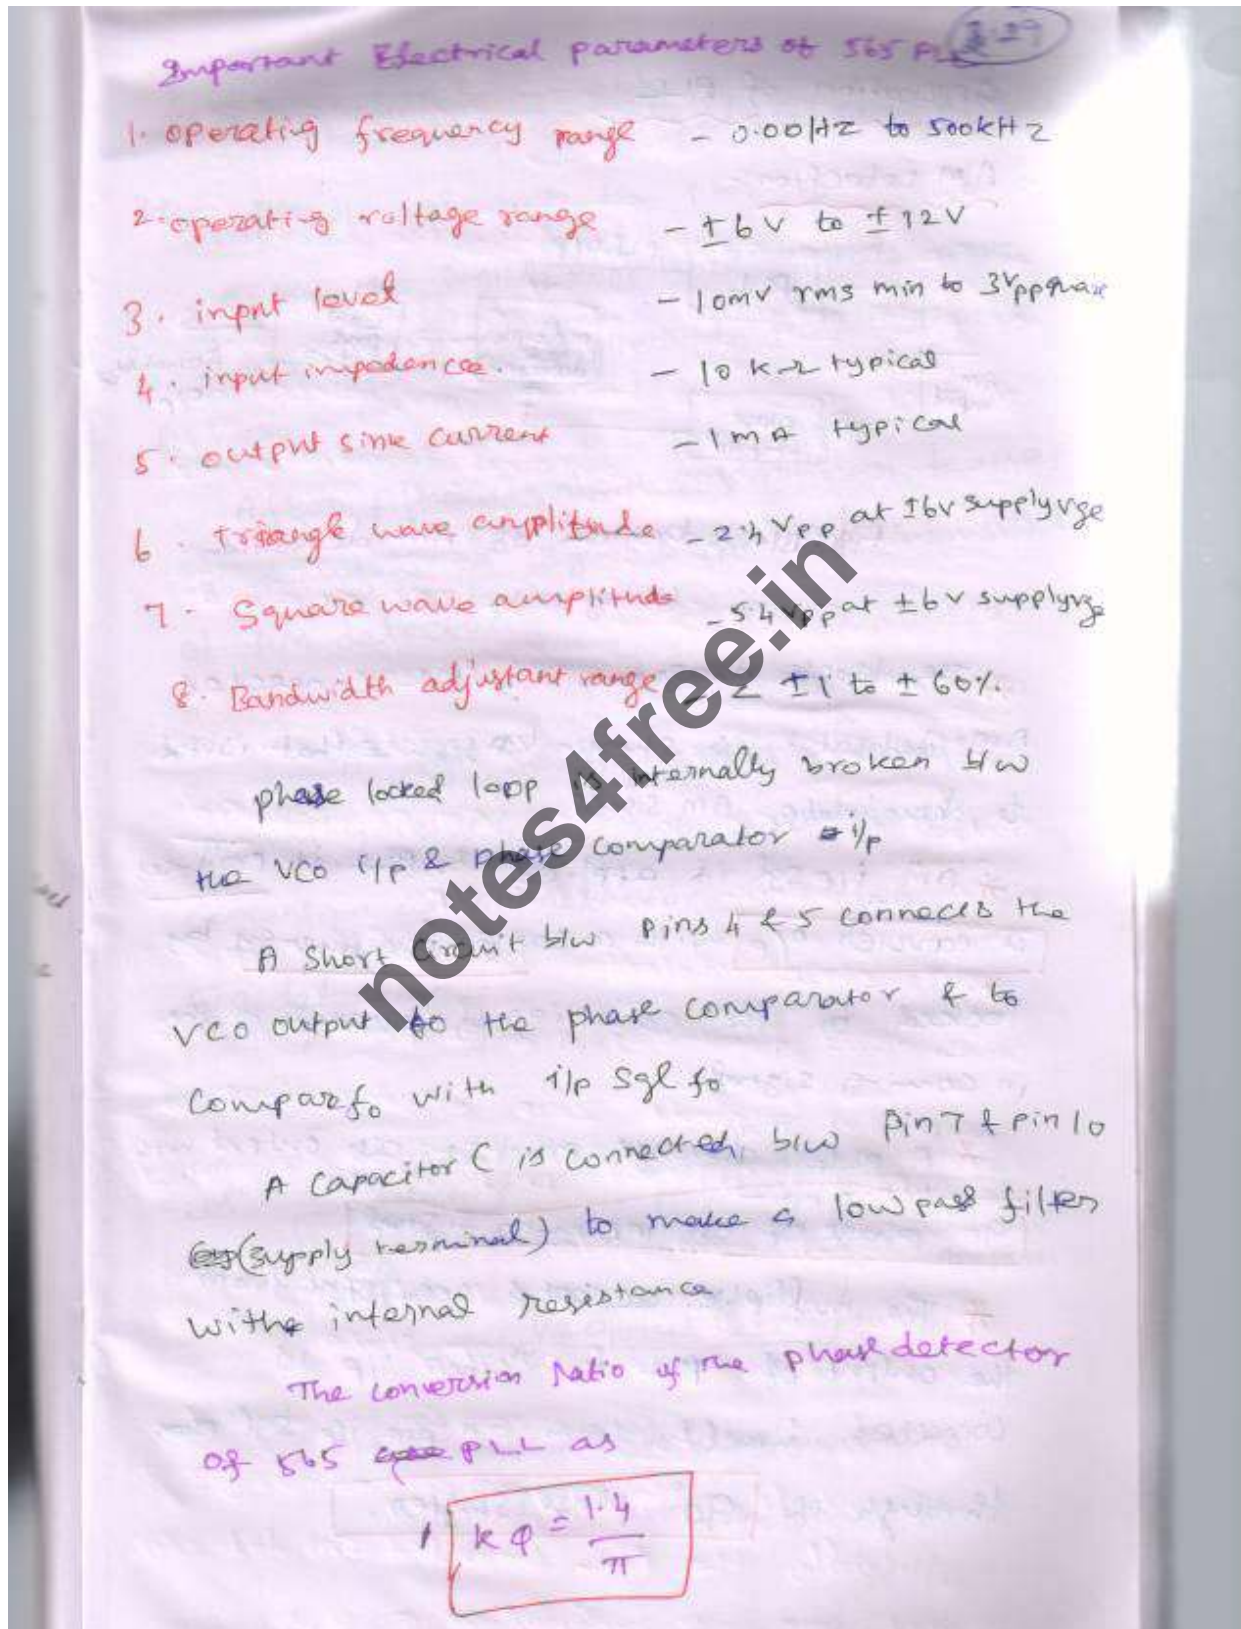 3.29
Important Electrical parameters of 565 PLL
1. operating frequency range - 0.001Hz to 500kHz
2. operating voltage range - ±6V to ±12V
3. input level - 10mv rms min to 3Vpp max
4. input impedance. - 10 KΩ typical
5. output sink current - 1mA typical
6. triangle wave amplitude - 2.4 Vpp at ±6v supply vge
7. Square wave amplitude - 5.4 Vpp at ±6v supply vge
8. Bandwidth adjustant range - < ±1 to ± 60%.
phase locked loop is internally broken b/w
the VCO i/p & phase comparator i/p
A Short Circuit b/w pins 4 & 5 connects the
VCO output to the phase comparator & to
compare fo with i/p sgl fo
A capacitor C is connected, b/w Pin 7 & pin 10
(supply terminal) to make a low pass filter
with internal resistance
The conversion ratio of the phase detector
of 565 PLL as
kφ = 1.4/π
notes4free.in